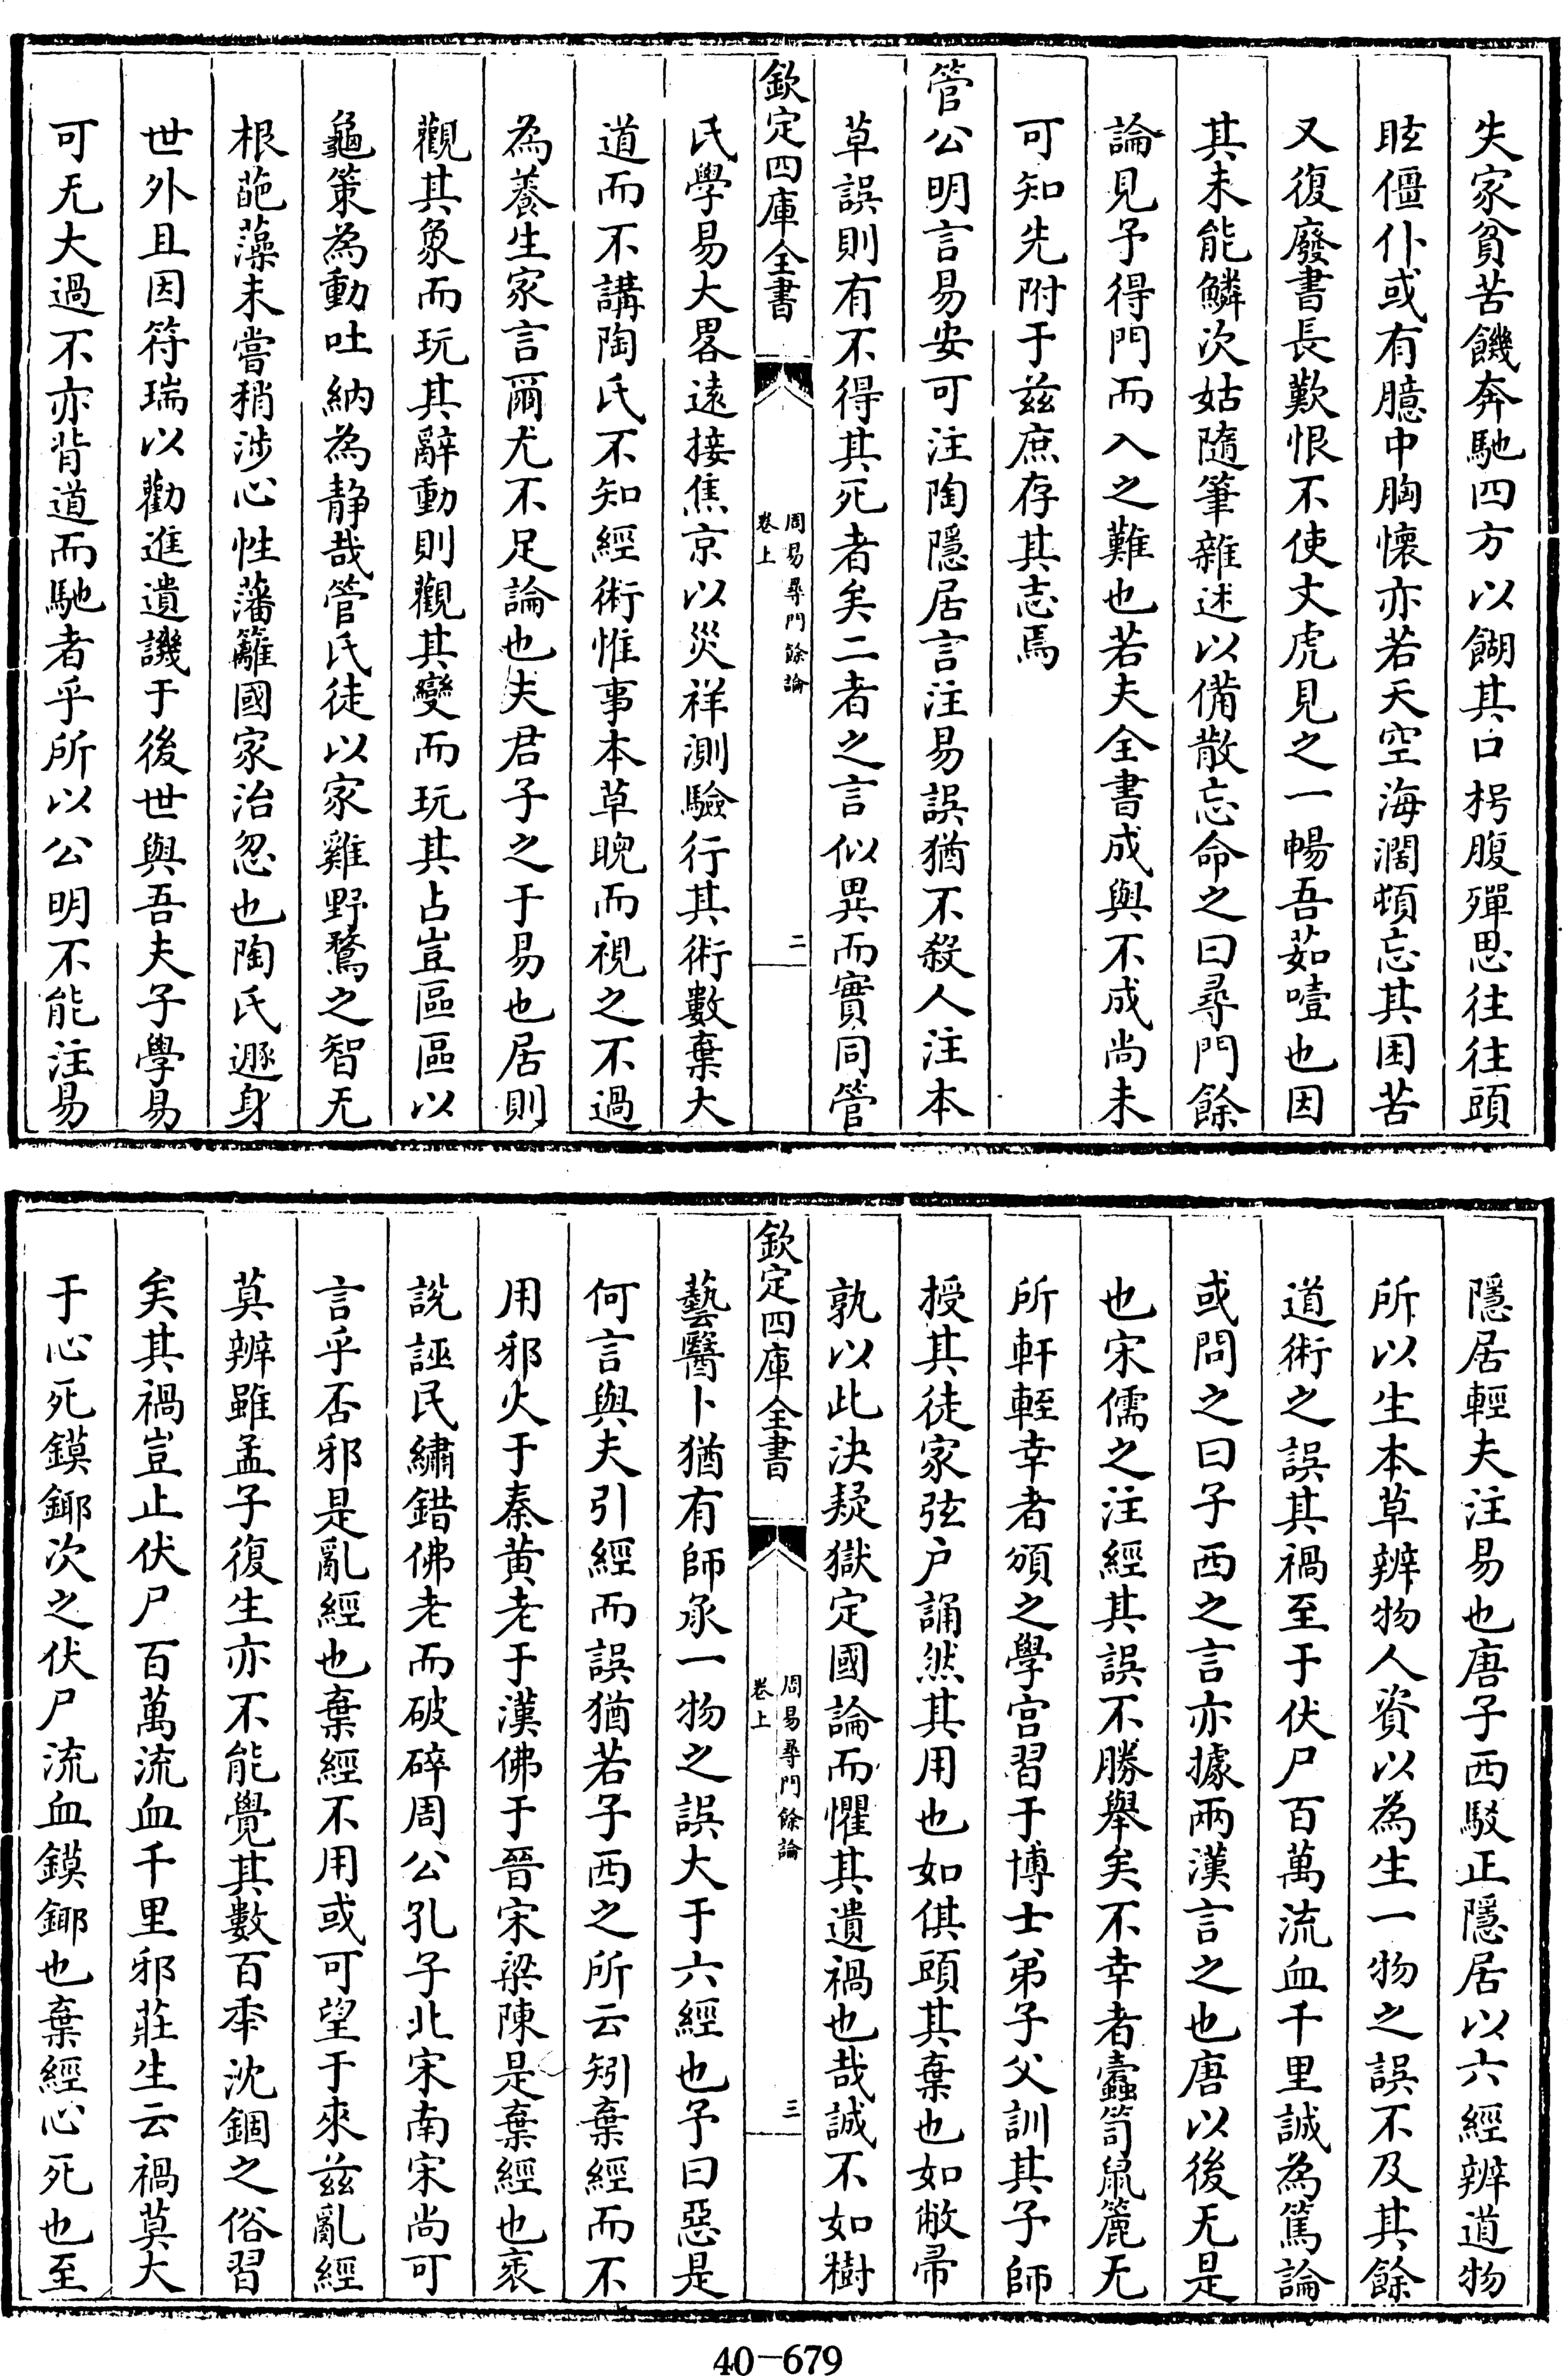 失家貧苦饑奔馳四方以餬其口枵腹殫思往往頭
眩僵仆或有臆中胸懷亦若天空海濶頓忘其困苦
又復廢書長歎恨不使丈虎見之一暢吾茹噎也因
其未能鱗次姑隨筆雜述以備散忘命之曰尋門餘
論見予得門而入之難也若夫全書成與不成尚未
可知先附于兹庶存其志焉
管公明言易安可注陶隱居言注易誤猶不殺人注本
草誤則有不得其死者矣二者之言似異而實同管
欽定四庫全書
周易尋門餘論
卷上
二
氏學易大畧遠接焦京以災祥測驗行其術數棄大
道而不講陶氏不知經術惟事本草睨而視之不過
為養生家言爾尤不足論也夫君子之于易也居則
觀其象而玩其辭動則觀其變而玩其占豈區區以
龜策為動吐納為静哉管氏徒以家雞野鶩之智无
根葩藻未嘗稍涉心性藩籬國家治忽也陶氏遯身
世外且因符瑞以勸進遺譏于後世與吾夫子學易
可无大過不亦背道而馳者乎所以公明不能注易
隱居輕夫注易也唐子西駁正隱居以六經辨道物
所以生本草辨物人資以為生一物之誤不及其餘
道術之誤其禍至于伏尸百萬流血千里誠為篤論
或問之曰子西之言亦據兩漢言之也唐以後无是
也宋儒之注經其誤不勝舉矣不幸者蠹笥鼠簏无
所軒輊幸者頒之學宫習于博士弟子父訓其子師
授其徒家弦户誦然其用也如倛頭其棄也如敝帚
孰以此決疑獄定國論而懼其遺禍也哉誠不如樹
欽定四庫全書
周易尋門餘論
卷上
三
藝醫卜猶有師承一物之誤大于六經也予曰惡是
何言與夫引經而誤猶若子西之所云矧棄經而不
用邪火于秦黄老于漢佛于晉宋梁陳是棄經也衺
說誣民繡錯佛老而破碎周公孔子北宋南宋尚可
言乎否邪是亂經也棄經不用或可望于來兹亂經
莫辨雖孟子復生亦不能覺其數百年沈錮之俗習
矣其禍豈止伏尸百萬流血千里邪莊生云禍莫大
于心死鏌鎁次之伏尸流血鏌鎁也棄經心死也至
40-679